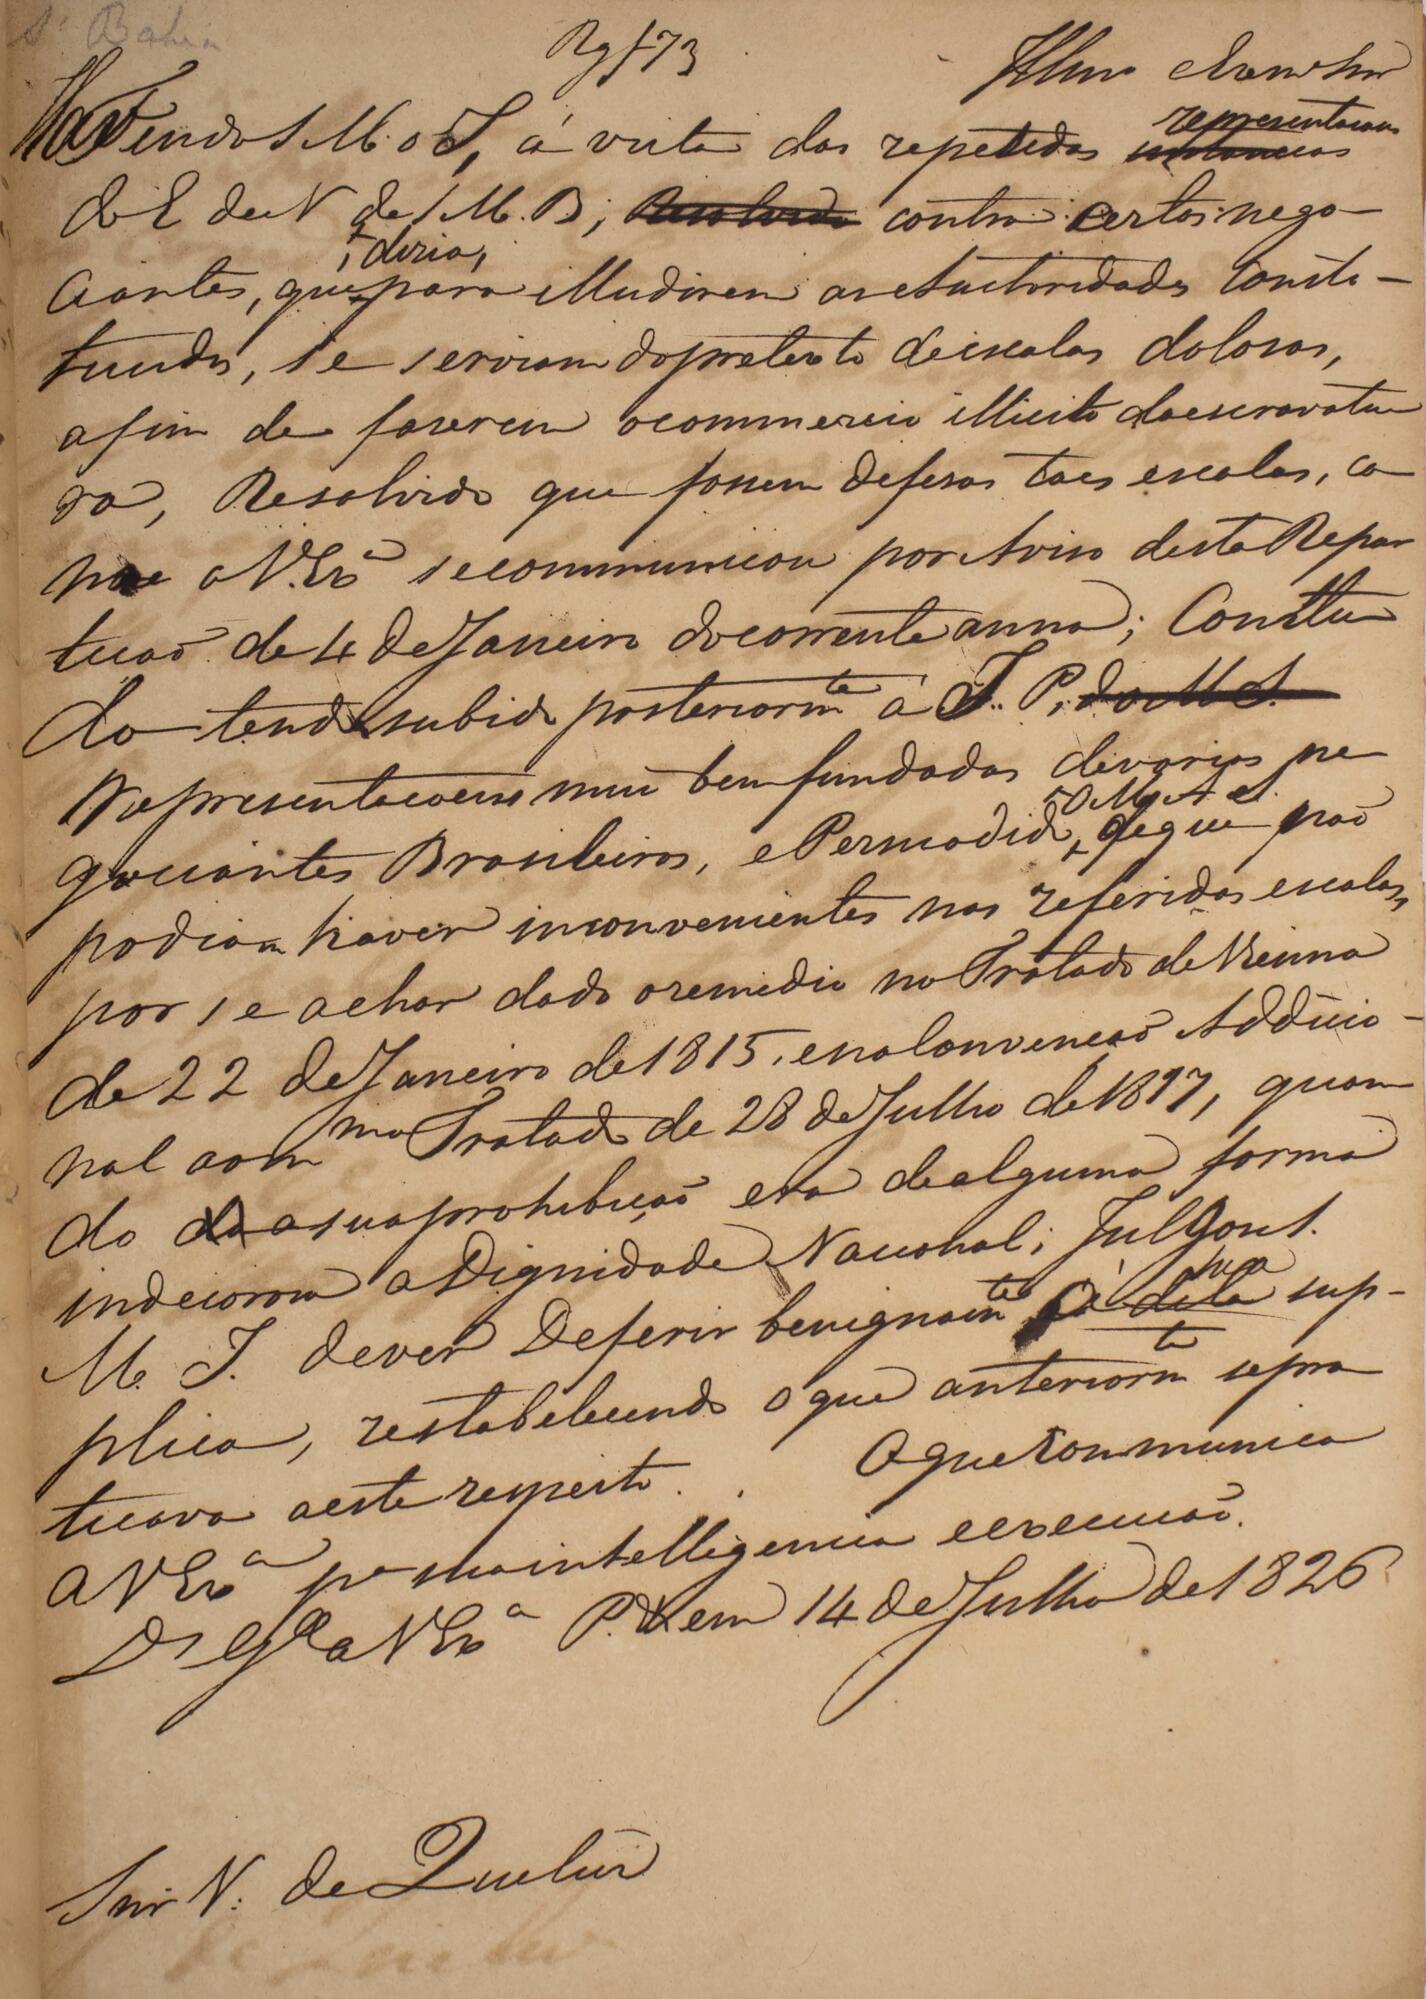 Bahia
Rg f 73
Illmo e Exmo Snr
Havendo S M. o I, á vista das repetidas representacoens instancias
do E. de N. de S. M. B, Resolvido contra certos nego-
ciantes, que, dizia, para illudirem as Auctoridades Consti-
tuidas, se serviam do pretexto de escalas dolosas,
afim de fazerem o commercio illicito da escravatu
ra, Resolvido que fossem defesas taes escalas, co
mo a V. Exª se communicou por Aviso desta Repar
ticaõ de 4 de Janeiro do corrente anno; Constan
do tendo subido posteriormte á I. P. do M. S.
Representacoens mui bem fundadas de varios ne
gociantes Brasileiros, e Persuadido o M. A. S. de que naõ
podiam haver inconvenientes nas referidas escalas,
por se achar dado o remedio no Tratado de Vienna
de 22 de Janeiro de 1815, e na Convencaõ Addicio-
nal ao mmo Tratado de 28 de Julho de 1817, quan
do a sua prohibiçaõ era de alguma forma
indecorosa a Dignidade Nacional; Julgou S.
M. I. dever Deferir benignamte á dita sua sup-
plica, restabelecendo o que anteriormte se pra
ticava a este respeito. O que communico
a V Exª pª sua intelligencia e execucaõ.
Ds Gde a V Exª P. em 14 de Julho de 1826
Snr V. de Queluz